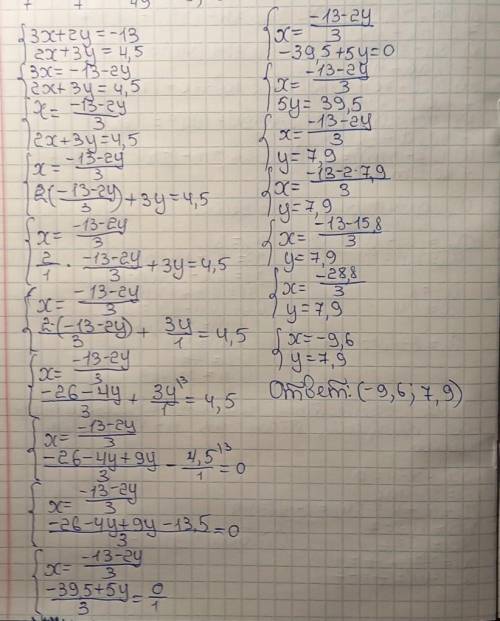 3x+2y=-13
2x+3y=4,5
3x=-13-2y
2x+3y=4,5
x=-13-2y/3
2x+3y=4,5
x=-13-2y/3
2(-13-2y/3)+3y=4,5
x=-13-2y/3
2/1·-13-2y/3+3y=4,5
x=-13-2y/3
2(-13-2y)/3+3y/1=4,5
x=-13-2y/3
-26-4y/3+3y/1^{13}=4,5
x=-13-2y/3
-26-4y+9y/3-4,5/1^{13}=0
x=-13-2y/3
-26-4y+9y-13,5/3=0
x=-13-2y/3
-39,5+5y/3=0/1
x=-13-2y/3
-39,5+5y=0
x=-13-2y/3
5y=39,5
x=-13-2y/3
y=7,9
x=-13-2·7,9/3
y=7,9
x=-13-15,8/3
y=7,9
x=-28,8/3
y=7,9
x=-9,6
y=7,9
Ответ: (-9,6; 7,9)